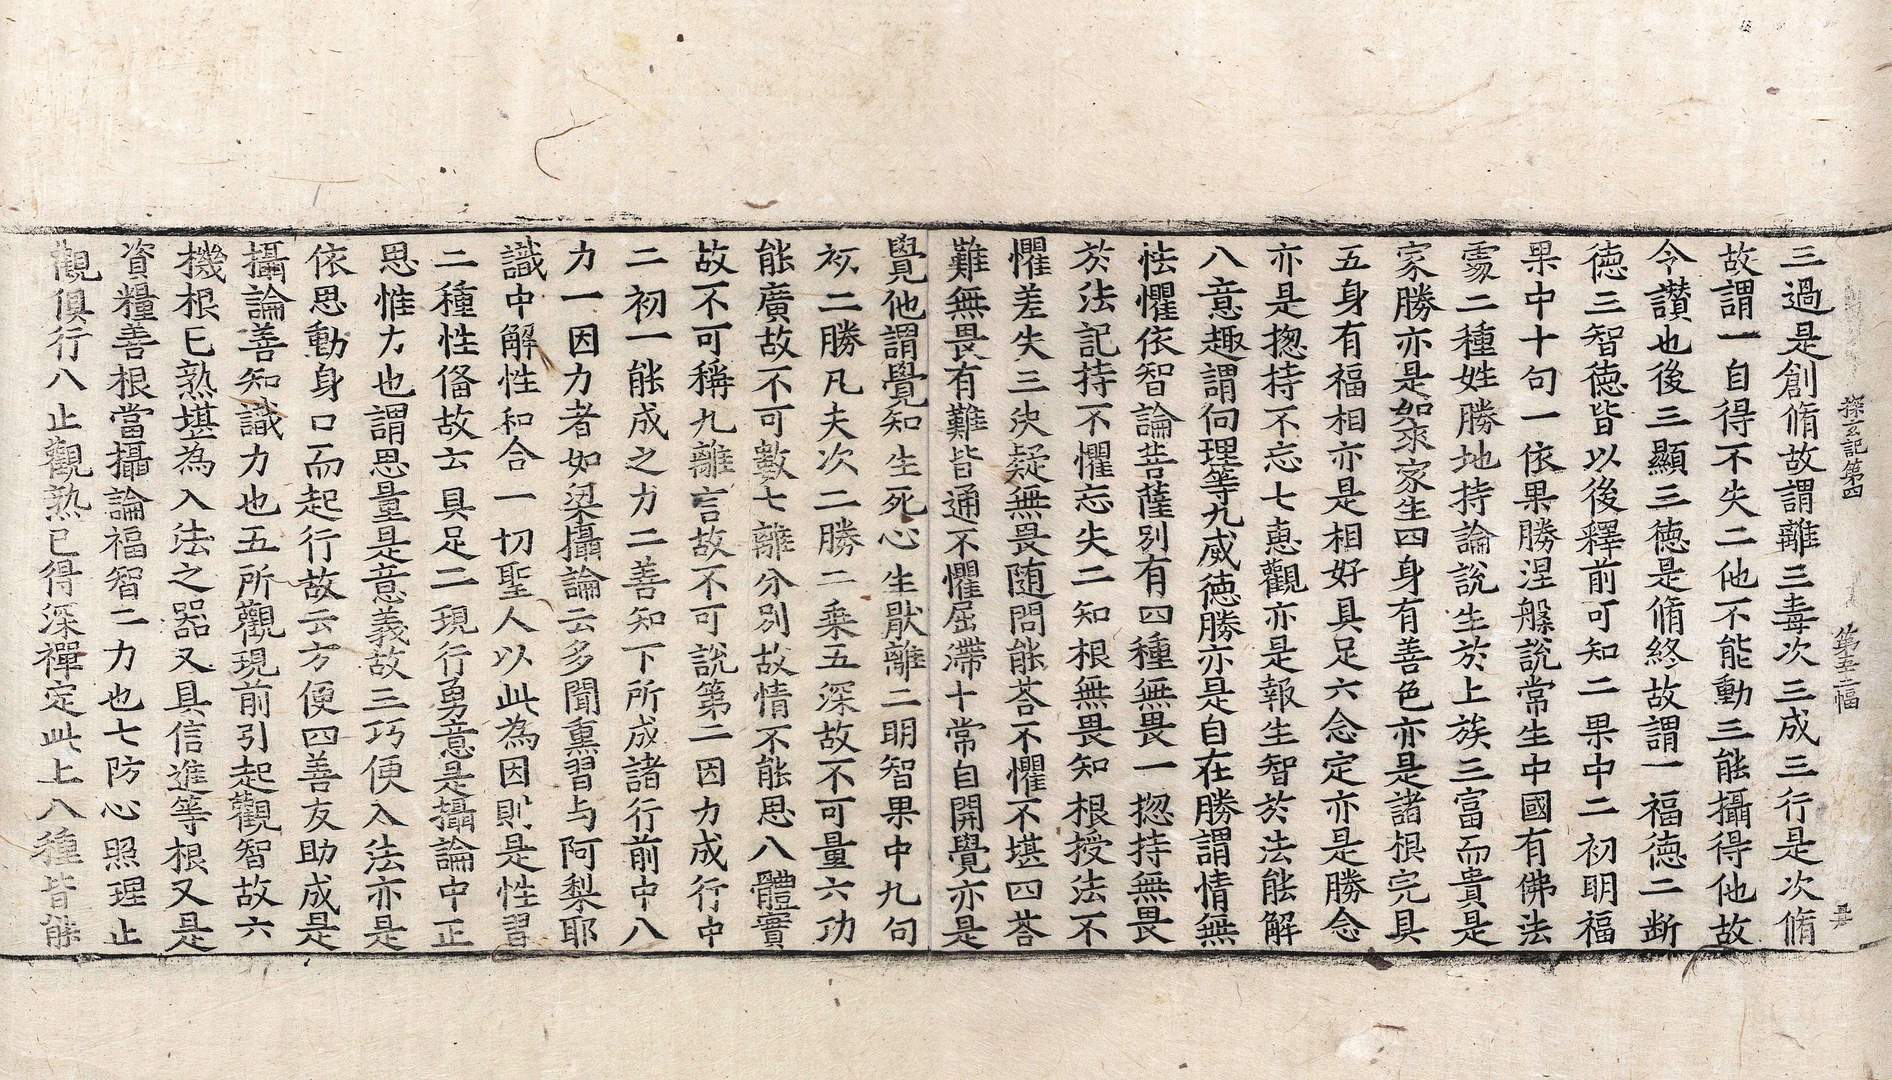 探玄記第四
第五二幅
三過是創脩故謂離三毒次三成三行是次脩
故謂一自得不失二他不能動三能攝得他故
今讚也後三顯三徳是脩終故謂一福徳二断
徳三智徳皆以後釋前可知二果中二初明福
果中十句一依果勝涅槃說常生中國有佛法
處二種姓勝地持論說生於上族三富而貴是
家勝亦是如來家生四身有善色亦是諸根完具
五身有福相亦是相好具足六念定亦是勝念
亦是揔持不忘七恵觀亦是報生智於法能解
八意趣謂伺理等九威徳勝亦是自在勝謂情無
怯懼依智論菩薩別有四種無畏一揔持無畏
於法記持不懼忘失二知根無畏知根授法不
懼差失三決疑無畏随問能荅不懼不堪四荅
難無畏有難皆通不懼屈滯十常自開覺亦是
覺他謂覺知生死心生猒離二明智果中九句
初二勝凡夫次二勝二乗五深故不可量六功
能廣故不可數七離分別故情不能思八體實
故不可稱九離言故不可說第二因力成行中
二初一能成之力二善知下所成諸行前中八
力一因力者如梁攝論云多聞熏習与阿梨耶
識中解性和合一切聖人以此為因則是性習
二種性俻故云具足二現行勇意是攝論中正
思惟力也謂思量是意義故三巧便入法亦是
依思動身口而起行故云方便四善友助成是
攝論善知識力也五所觀現前引起觀智故六
機根已熟堪為入法之器又具信進等根又是
資糧善根當攝論福智二力也七防心照理止
觀俱行八止觀熟已得深禪定此上八種皆能